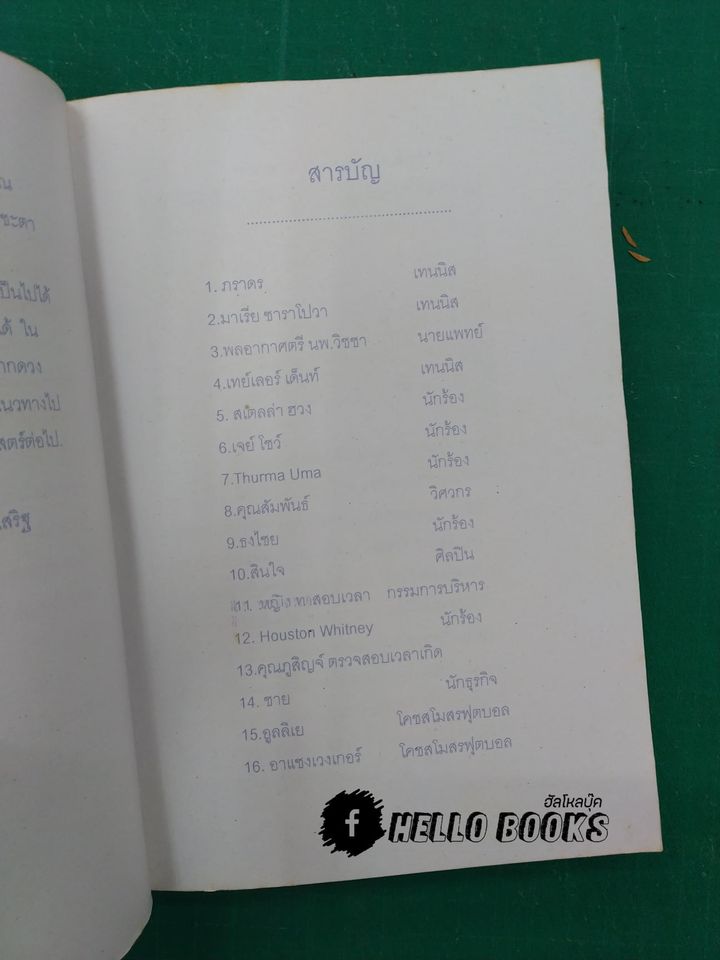 ซะตา
ป็นไปได้
ด้ ใน
ากดวง
นวทางไป
สตร์ต่อไป.
สริฐ
สารบัญ
1. ภราดร เทนนิส
2.มาเรีย ซาราโปวา เทนนิส
3.พลอากาศตรี นพ.วิชชา นายแพทย์
4.เทย์เลอร์ เด็นท์ เทนนิส
5. สเตลล่า ฮวง นักร้อง
6.เจย์ โชว์ นักร้อง
7.Thurma Uma นักร้อง
8.คุณสัมพันธ์ วิศวกร
9.ธงไชย นักร้อง
10.สินใจ ศิลปิน
11. หญิง ทาสอบเวลา กรรมการบริหาร
12. Houston Whitney นักร้อง
13.คุณภูสิญจ์ ตรวจสอบเวลาเกิด
14. ชาย นักธุรกิจ
15.อูลลิเย โคชสโมสรฟุตบอล
16. อาแซงเวงเกอร์ โคชสโมสรฟุตบอล
ฮัลโหลบุ๊ค
f HELLO BOOKS